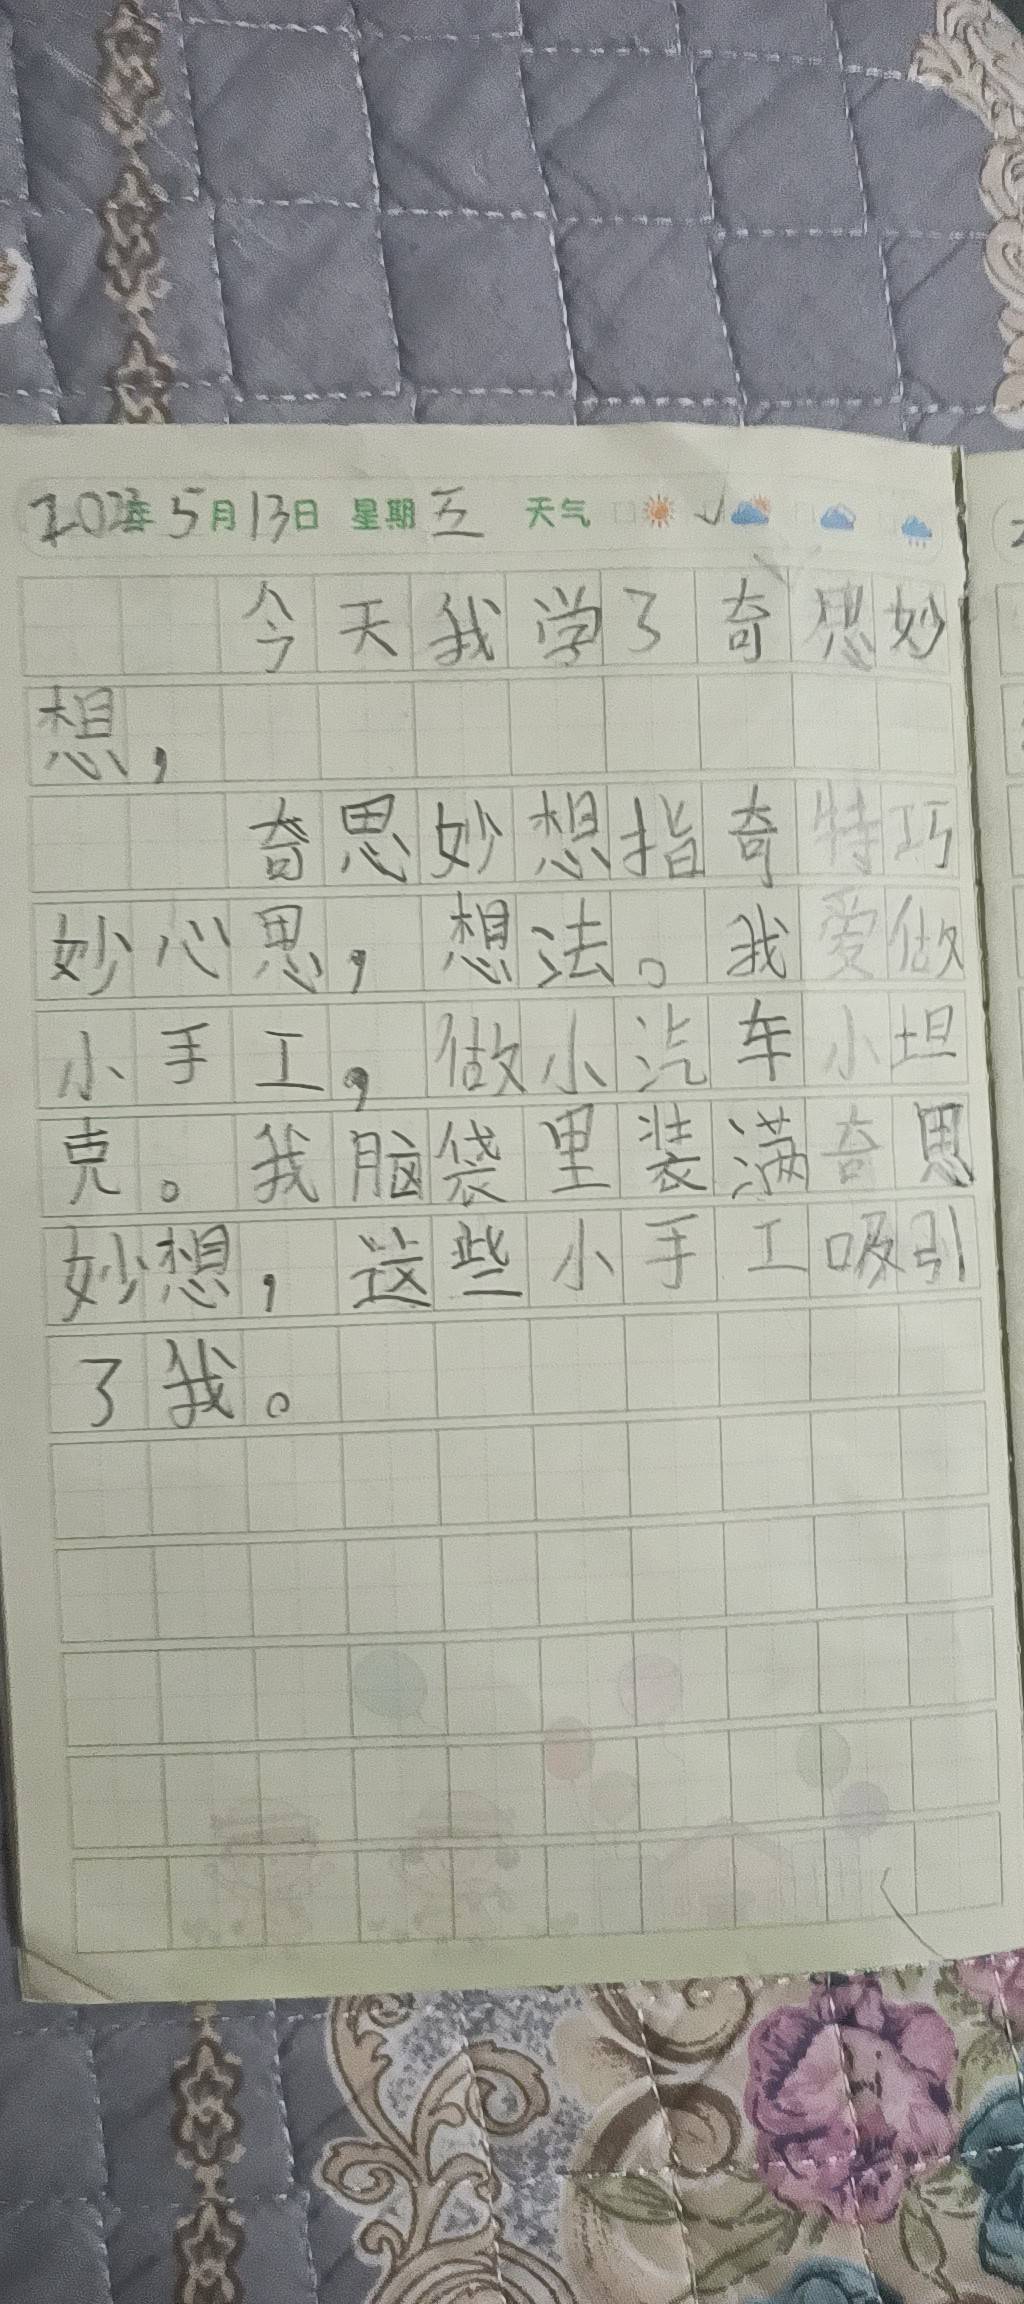 2022年5月13日 星期五 天气
今天我学了奇思妙
想，
奇思妙想指奇特巧
妙心思，想法。我爱做
小手工，做小汽车小坦
克。我脑袋里装满奇思
妙想，这些小手工吸引
了我。